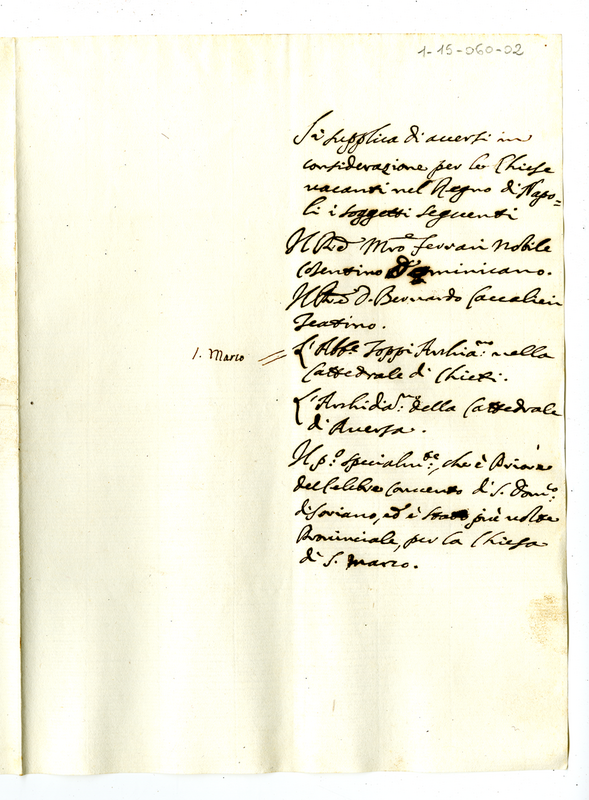 1-15-060-02
Si supplica di auersi in
considerazione per le Chiese
vacanti nel Regno di Napo=
li i soggetti seguenti
Il Pre Mro Ferrari Nobile
Cosentino Dominicano.
Il Pre D. Bernardo Caualieri
Teatino.
S. Marco
L'Abbe Toppi Archiano: nella
Cattedrale di Chieti.
L'Archidiano: della Cattedrale
di Auersa.
Il po. specialmte:, che è Priore
del Celebre Conuento di S. Domco:
di Soriano, ed è stato più uolte
Prouinciale, per la Chiesa
di S. Marco.